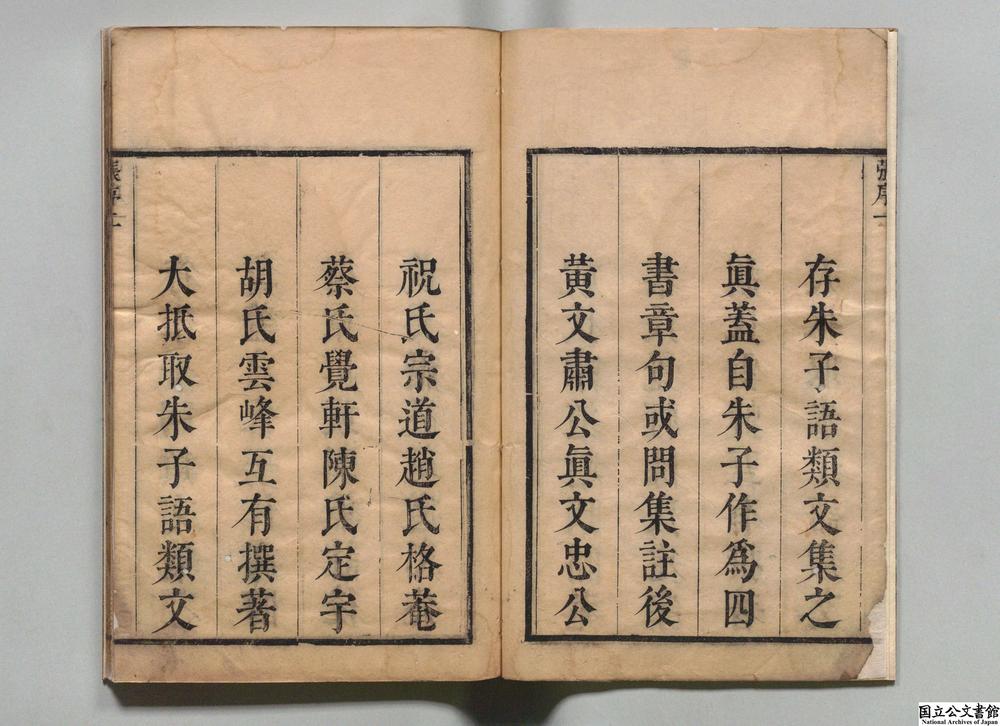 張序一
存朱子語類文集之
眞蓋自朱子作爲四
書章句或問集註後
黄文肅公眞文忠公
祝氏宗道趙氏格菴
蔡氏覺軒陳氏定宇
胡氏雲峰互有撰著
大抵取朱子語類文
張序二
国立公文書館
National Archives of Japan